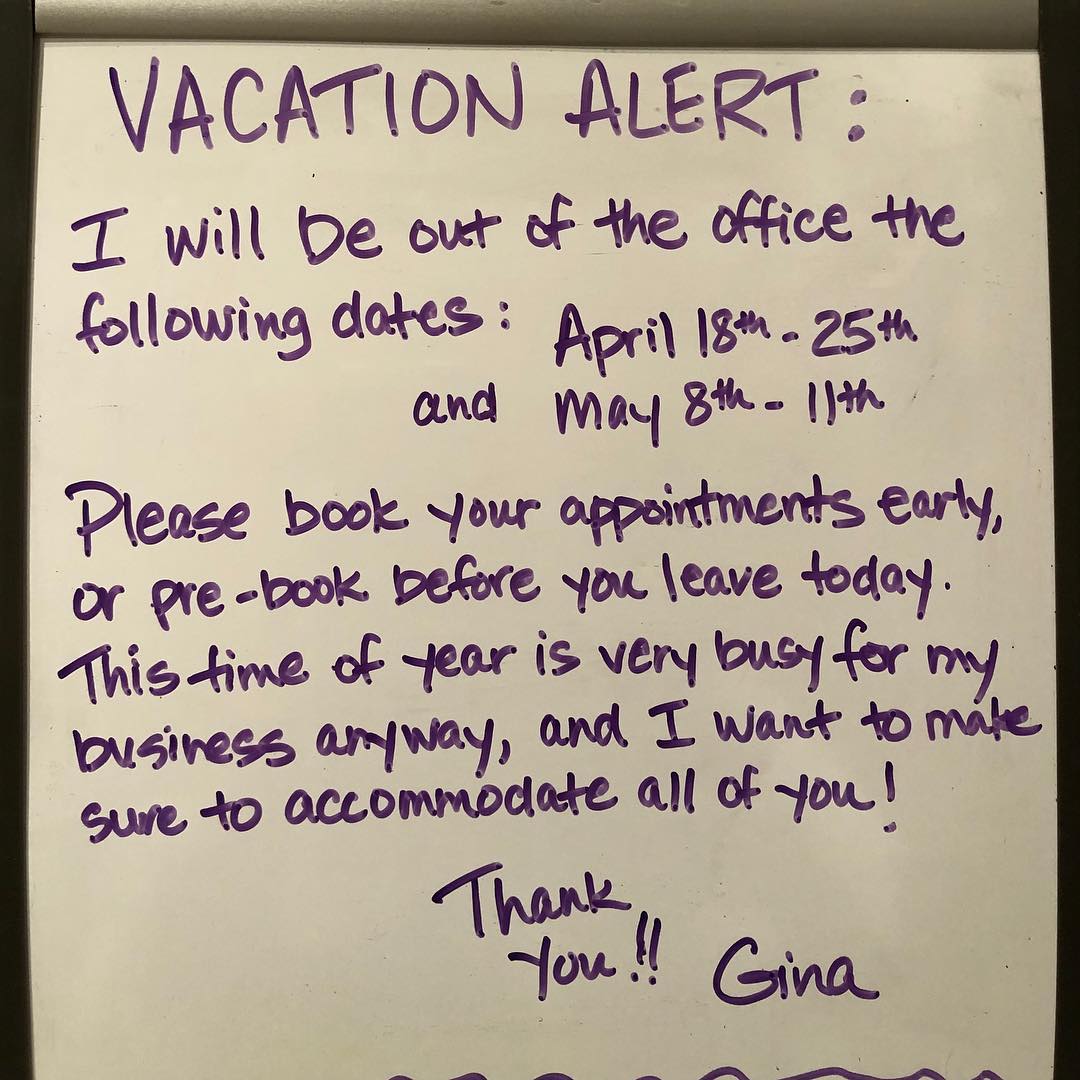 VACATION ALERT:
I will be out of the office the
following dates: April 18th - 25th
and May 8th - 11th
Please book your appointments early,
or pre-book before you leave today.
This time of year is very busy for my
business anyway, and I want to make
sure to accommodate all of you!
Thank
you!! Gina